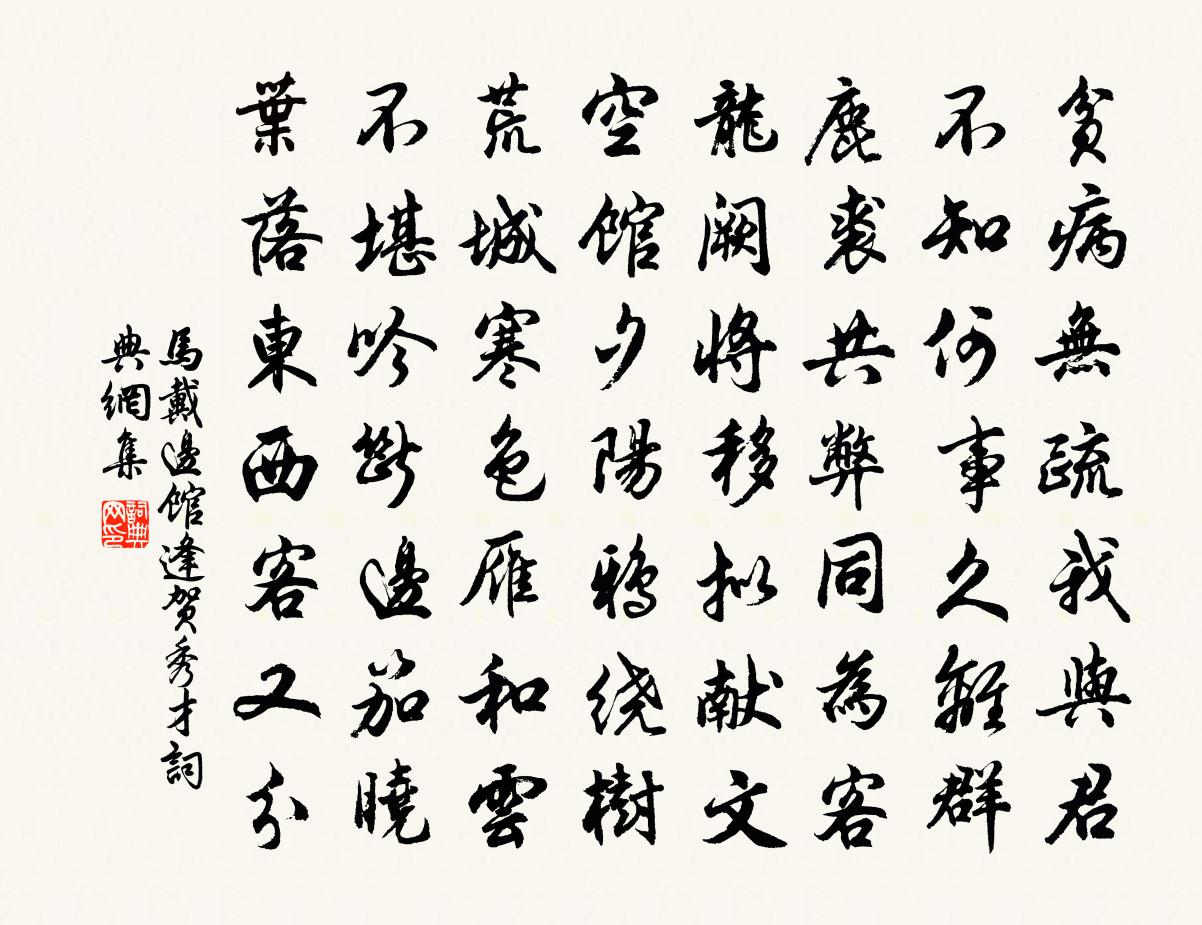 貧病無疏我與君
不知何事久離群
鹿裘共弊同為客
龍闕將移拟献文
空館夕陽鴉绕樹
荒城寒色雁和雲
不堪吟斷邊笳曉
葉落東西客又分
馬戴邊館逢賀秀才詞
典網集
詞典
网印